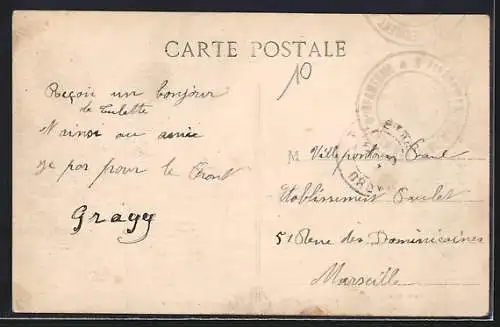 CARTE POSTALE
10
Reçoit un bonjour
de Tulette
ainsi au amie
je par pour le front
Gragy
M Villepontoux Paul
Etablissement Paulet
51 Rue des Dominicaines
Marseille